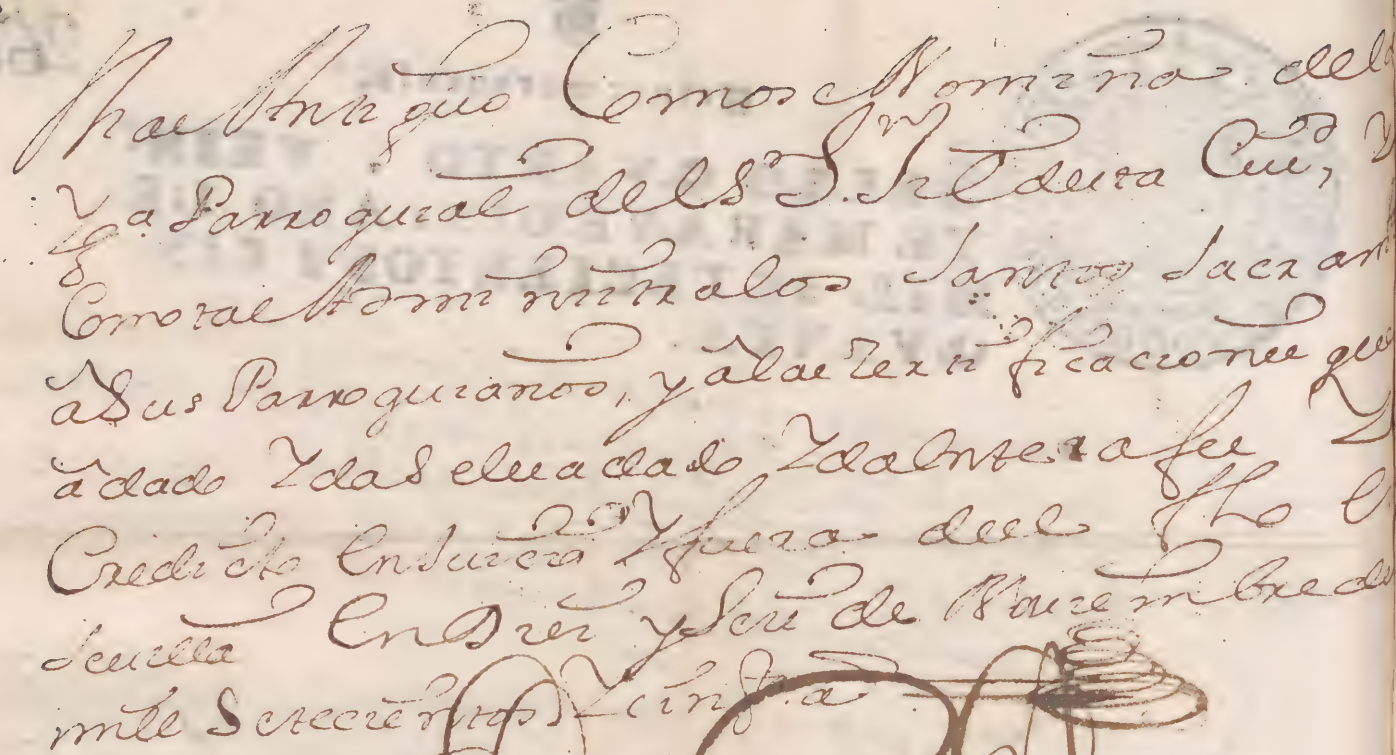 mas Antiguo Como mas Nomina de la
Yga Parroquial del Sr. S. Jil de esta Ciud, Y
Como tal Administra los Santos Sacram
a Sus Parroquianos, y a las Zertificaciones que
a dado Y da Se lea dado Y da Entera fee Y
Credicto En Juicio Y fuera de el fho En
Sevilla En Diez y Seis de Noviembre de
mill Setecientos Y cinq.ta